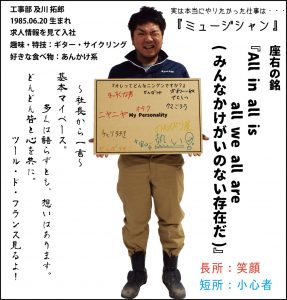 工事部 及川 拓郎
1985.06.20 生まれ
求人情報を見て入社
趣味・特技：ギター・サイクリング
好きな食べ物：あんかけ系
実は本当にやりたかった仕事は・・・
『ミュージシャン』
座右の銘
『All in all is
all we all are
(みんなかけがいのない存在だ)』
My Personality
ニヤニヤ
熱い
～社長から一言～
基本マイペース。
多くは語らずとも、想いはあります。
どんどん皆と心を共に。
ツール・ド・フランス見るよ！
長所：笑顔
短所：小心者